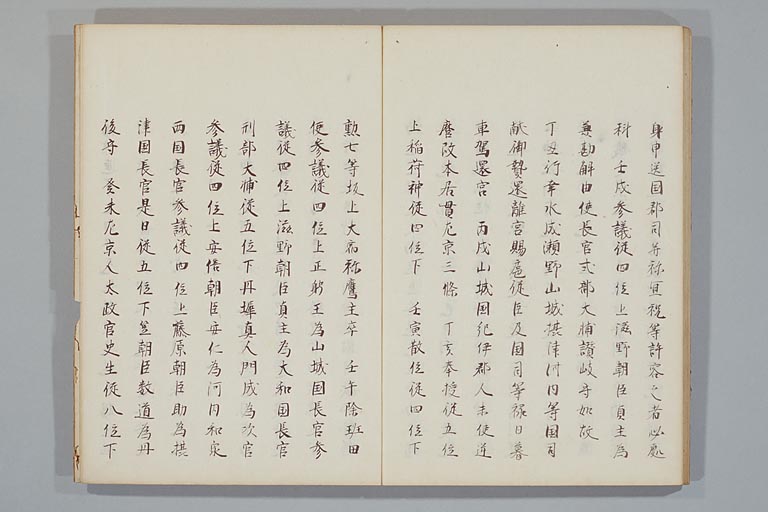 身申送国郡司并祢宜祝等許容之者必処
科 壬戌参議従四位上滋野朝臣貞主為
兼勘解由使長官式部大輔讃岐守如故
丁丑行幸水成瀬野山城摂津河内等国司
献御贄還離宮賜扈従臣及国司等禄日暮
車駕還宮 丙戌山城国紀伊郡人末使連
麿改本居貫左京三條 丁亥奉授従五位
上稲荷神従四位下 壬寅散位従四位下
勲七等坂上大宿祢鷹主卒 壬午除班田
使参議従四位上正躬王為山城国長官参
議従四位上滋野朝臣貞主為大和国長官
刑部大輔従五位下丹墀真人門成為次官
参議従四位上安倍朝臣安仁為河内和泉
両国長官参議従四位上藤原朝臣助為摂
津国長官是日従五位下笠朝臣数道為丹
後守 癸未左京人太政官史生従八位下